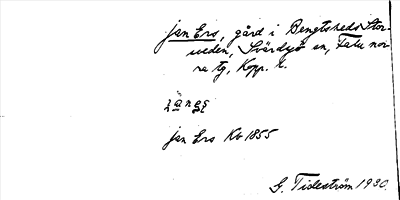 Jan Ers, gård i Bengtsheds Stor-
veden, Svärdsjö sn, Falu nor-
ra tg, Kopp. l.
Jan Ers Kb 1855
G. Tideström 1930.